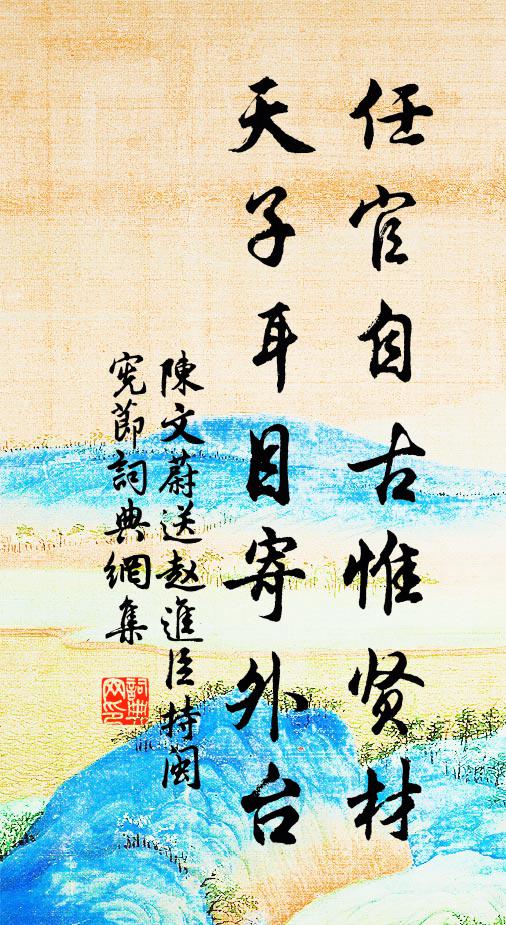 任官自古惟贤材
天子耳目寄外台
陳文蔚送赵進臣持闽
宪節詞典網集
詞典网印